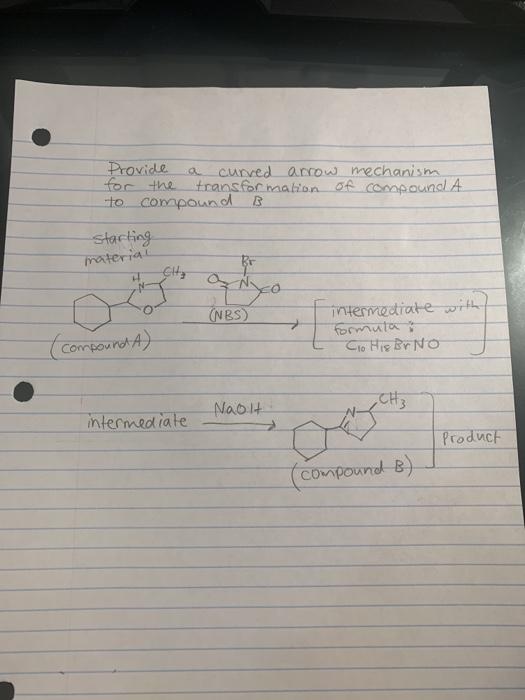 Provide a curved arrow mechanism
for the transformation of compound A
to compound B
starting
material
H
N
CH3
O
Br
O
N
O
(NBS)
(compound A)
[intermediate with
formula :
C10H18BrNO]
intermediate
NaOH
N
CH3
Product
(compound B)